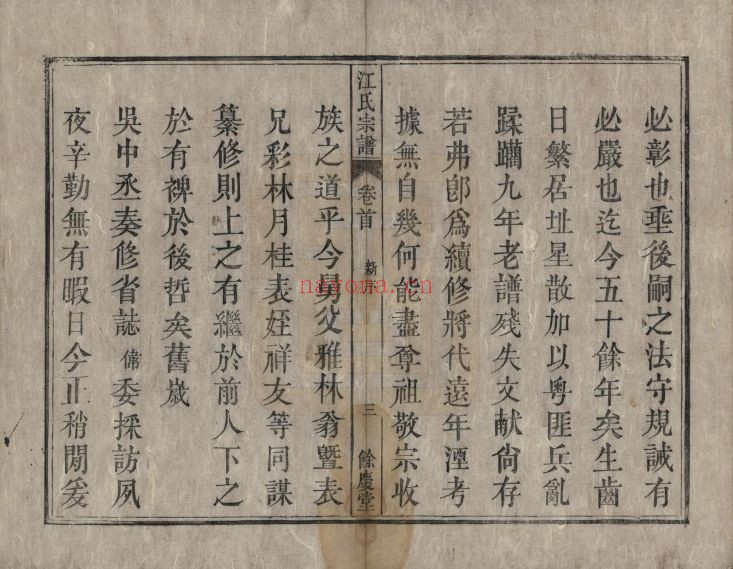 必彰也垂後嗣之法守規誡有
必嚴也迄今五十餘年矣生齒
日繁居址星散加以粵匪兵亂
蹂躪九年老譜殘失文献尙存
若弗卽爲續修將代遠年湮考
據無自幾何能盡尊祖敬宗收
江氏宗譜 卷首 新序 三 餘慶堂
族之道乎今舅父雅林翁暨表
兄彩林月桂表姪祥友等同謀
纂修則上之有繼於前人下之
於有裨於後哲矣舊歲
吳中丞奏修省誌 俻 委採訪夙
夜辛勤無有暇日今正稍閒爰